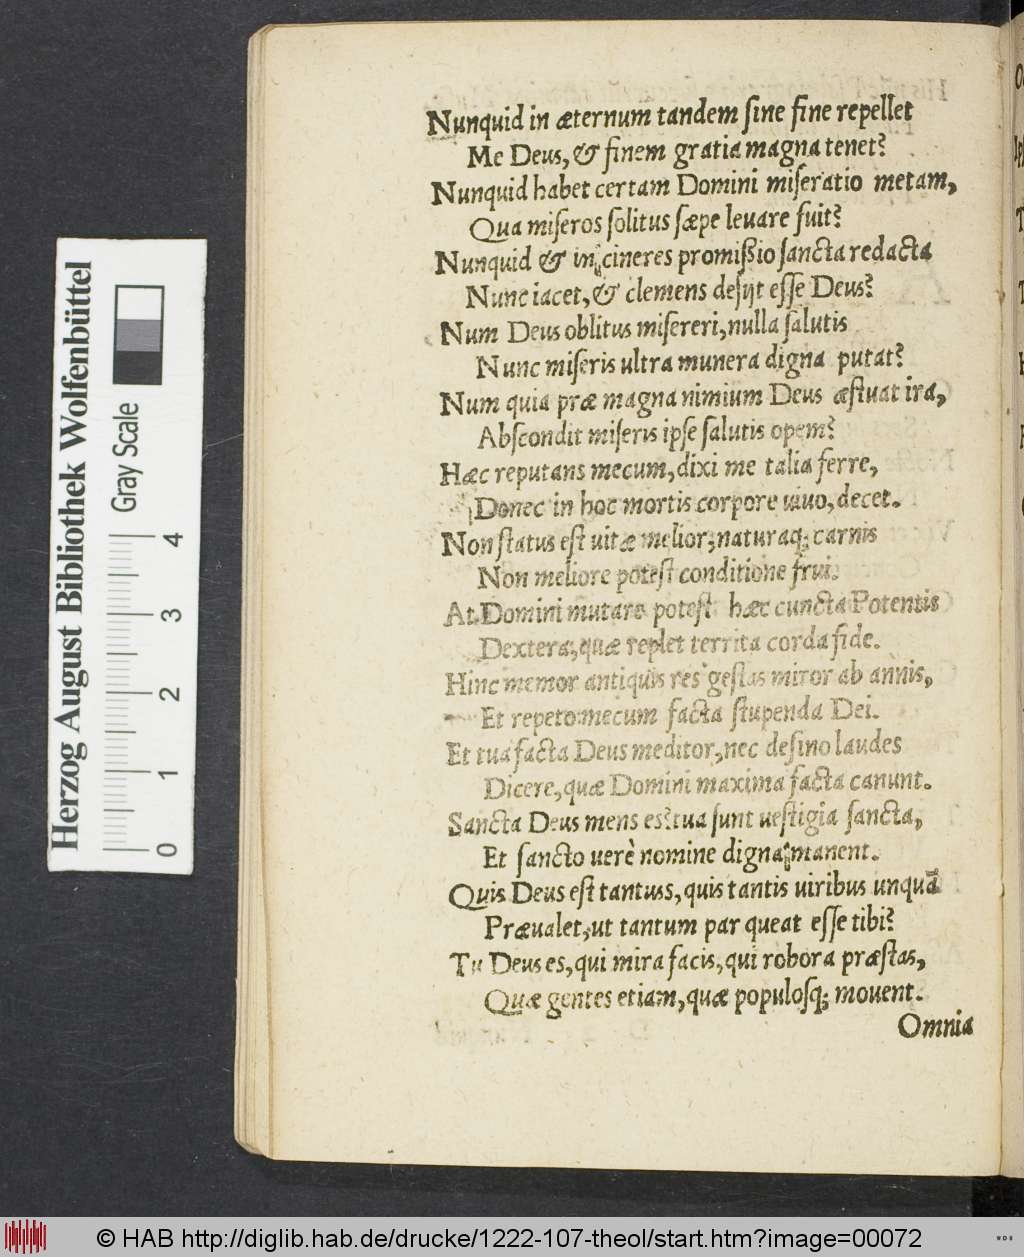 Nunquid in æternum tandem ſine fine repellet
Me Deus, & finem gratia magna tenet?
Nunquid habet certam Domini miſeratio metam,
Qua miſeros ſolitus ſæpe leuare fuit?
Nunquid & in cineres promiſsio ſancta redacta
Nunc iacet, & clemens deſijt eſſe Deus?
Num Deus oblitus miſereri, nulla ſalutis
Nunc miſeris ultra munera digna putat?
Num quia præ magna nimium Deus æſtuat ira,
Abſcondit miſeris ipſe ſalutis opem?
Hæc reputans mecum, dixi me talia ferre,
Donec in hoc mortis corpore uiuo, decet.
Non ſtatus eſt uitæ melior, naturaq; carnis
Non meliore poteſt conditione frui.
At Domini mutare poteſt hæc cuncta Potentis
Dextera, quæ replet territa corda fide.
Hinc memor antiquis res geſtas miror ab annis,
Et repeto mecum facta ſtupenda Dei.
Et tua facta Deus meditor, nec deſino laudes
Dicere, quæ Domini maxima facta canunt.
Sancta Deus mens es, tua ſunt ueſtigia ſancta,
Et ſancto uerè nomine digna manent.
Quis Deus eſt tantus, quis tantis uiribus unquã
Præualet, ut tantum par queat eſſe tibi?
Tu Deus es, qui mira facis, qui robora præſtas,
Quæ gentes etiam, quæ populoſq; mouent.
Omnia
Herzog August Bibliothek Wolfenbüttel
Gray Scale
0 1 2 3 4
© HAB http://diglib.hab.de/drucke/1222-107-theol/start.htm?image=00072